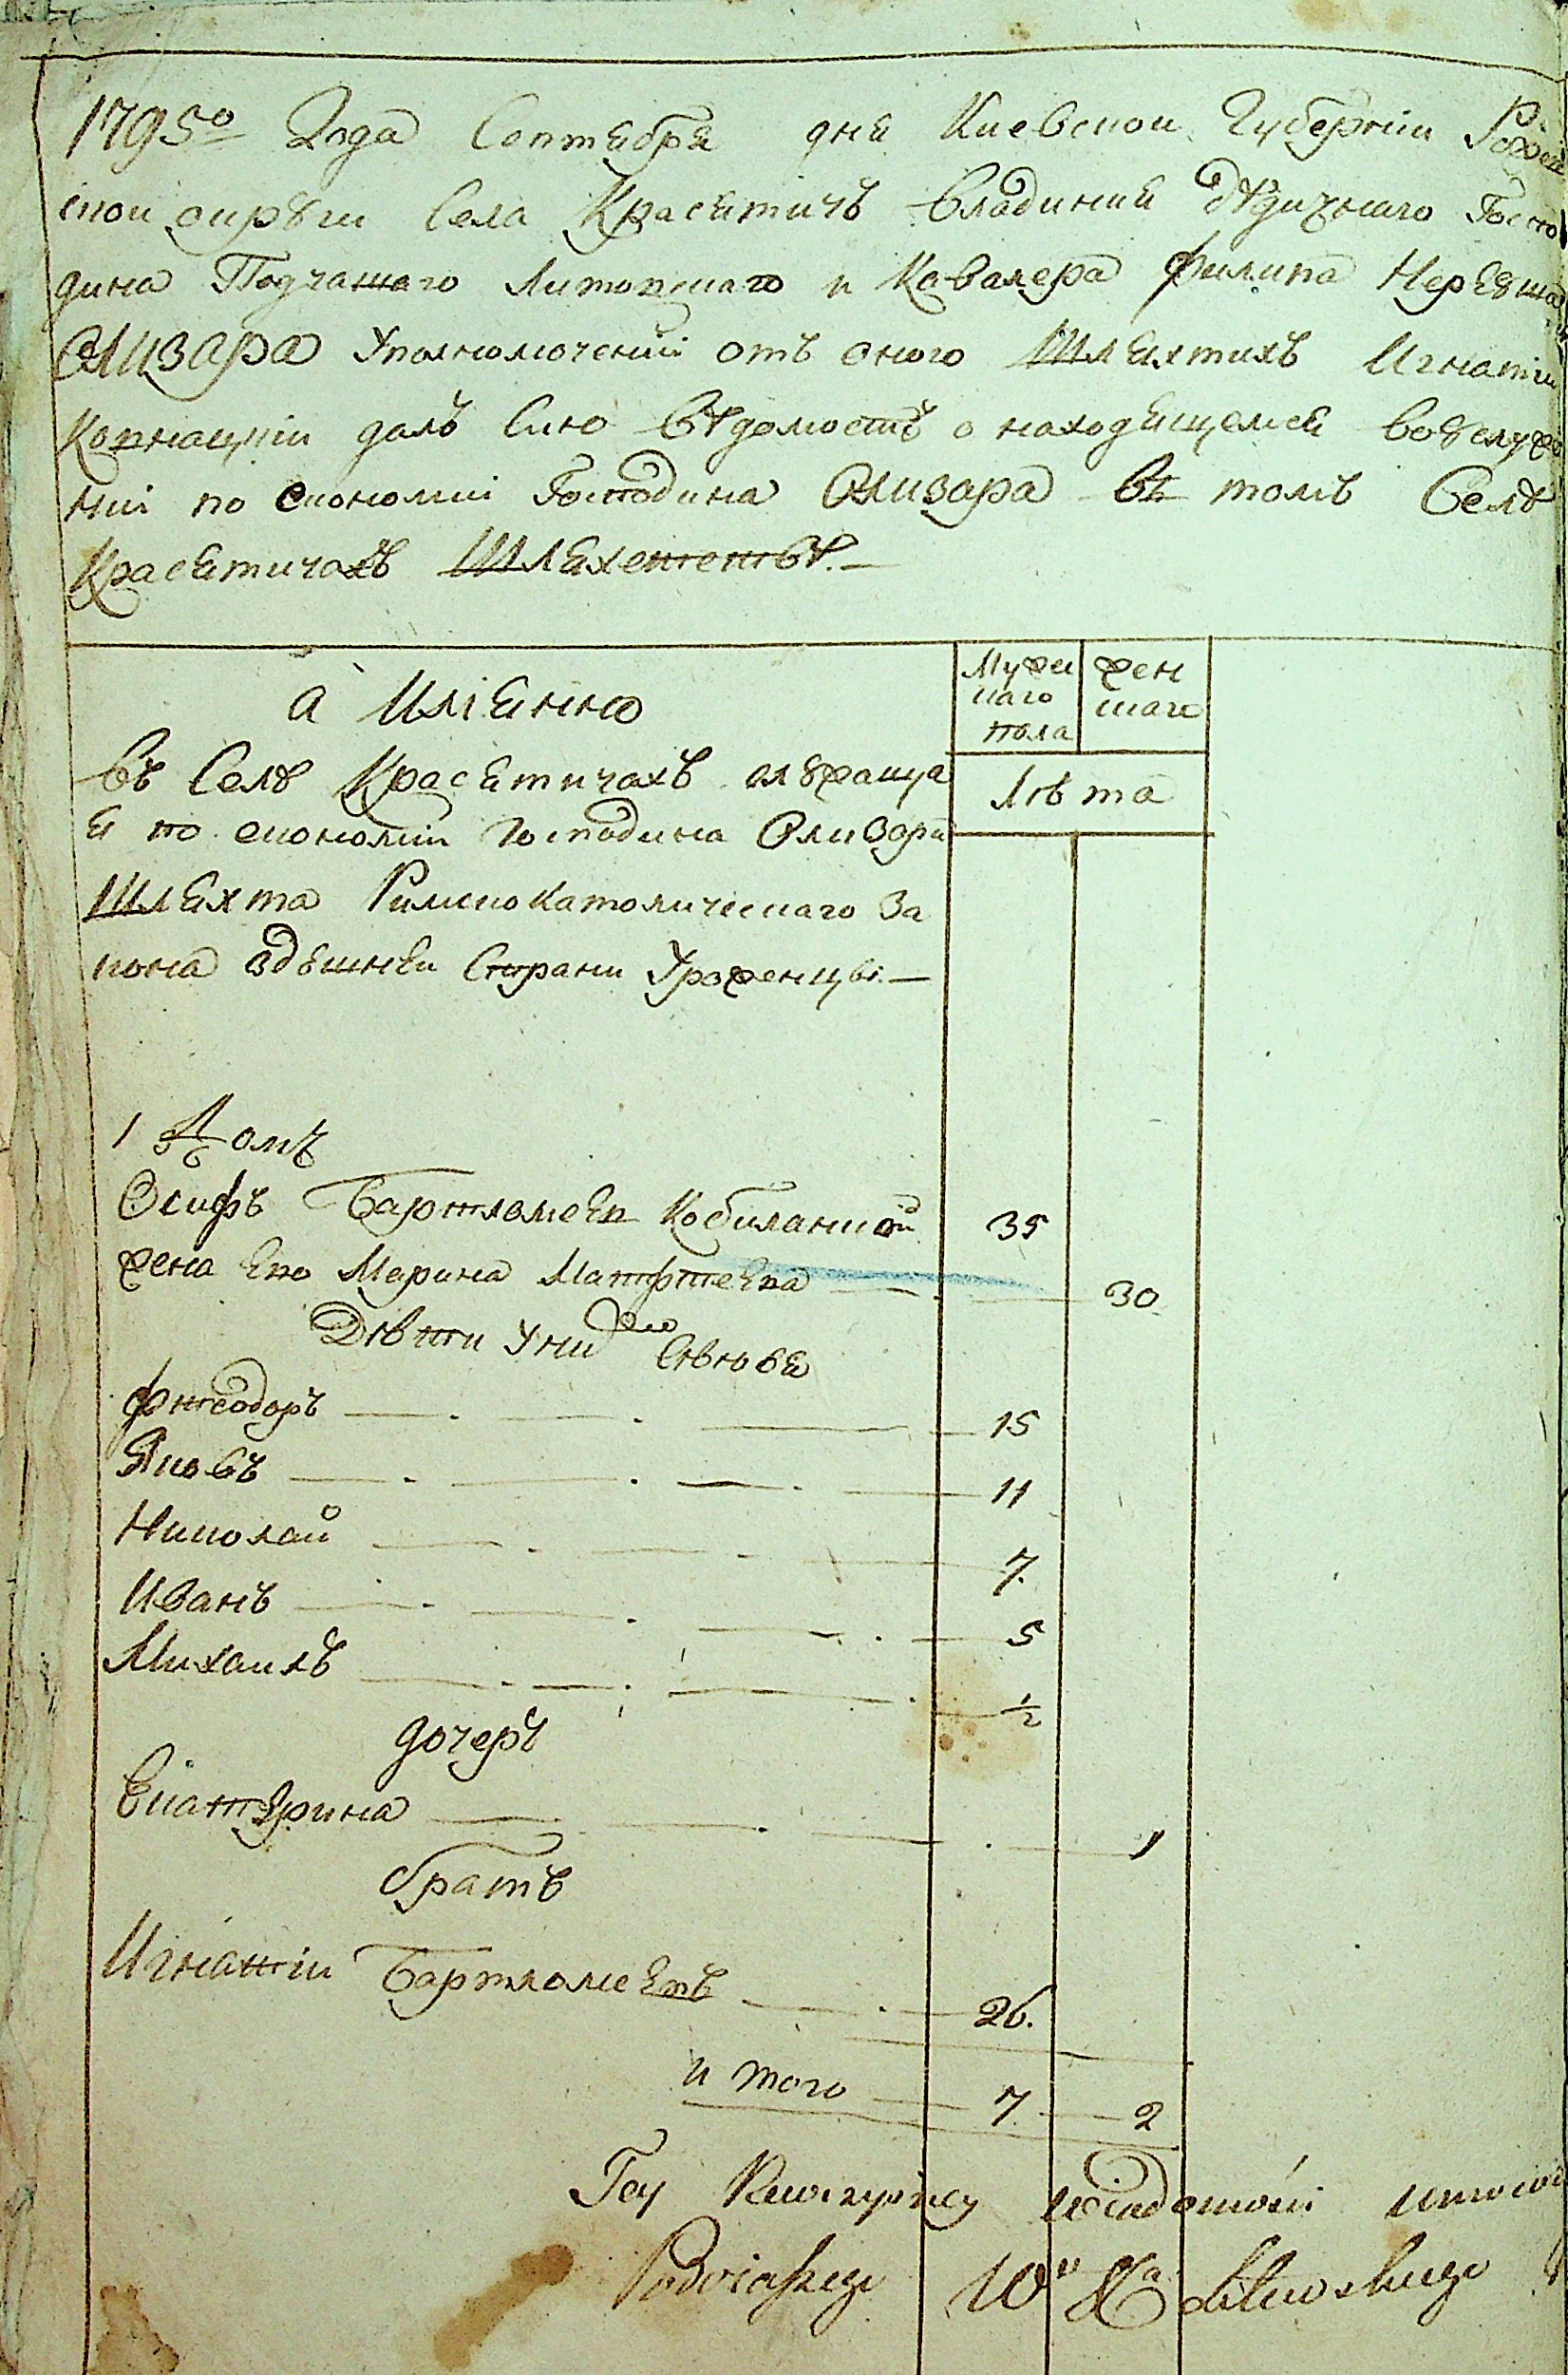 1795го Года Септября дня Киевской Губернии
ской округи Села Красятичъ владения дѣдичнаго Госпо
дина Подчашаго Литовскаго и Кавалера Филипа Нереуша
Олизара Уполномоченній отъ оного Шляхтичъ Игнатій
далъ Сию вѣдомость о находящемся воуслуже
ніи по економіи Господина Олизара въ томъ Селѣ
Красятичахъ Шляхетствѣ. —
а Имянно
Мужес
каго
пола
жен
скаго
Лѣта
въ Селѣ Красятичахъ служаща
я по економіи Господина Олизара
Шляхта Римскокатолическаго За
кона здѣшней Страни Уроженцы. —
1 Домъ
Осифъ Бартломеев Кобиланский 35
жена Его Марина Матфтеева 30
Дѣти Уних Синовя
Фтеодоръ 15
Яковъ 11
Николай 7.
Иванъ 5
Михаилъ 1/2
дочеръ
Екатерина 1
братъ
Игнатіи Бартломеевъ 26.
и того 7 2
Tey Rewizyiney wiadomości
Podczaszego W° X° Litewskiego